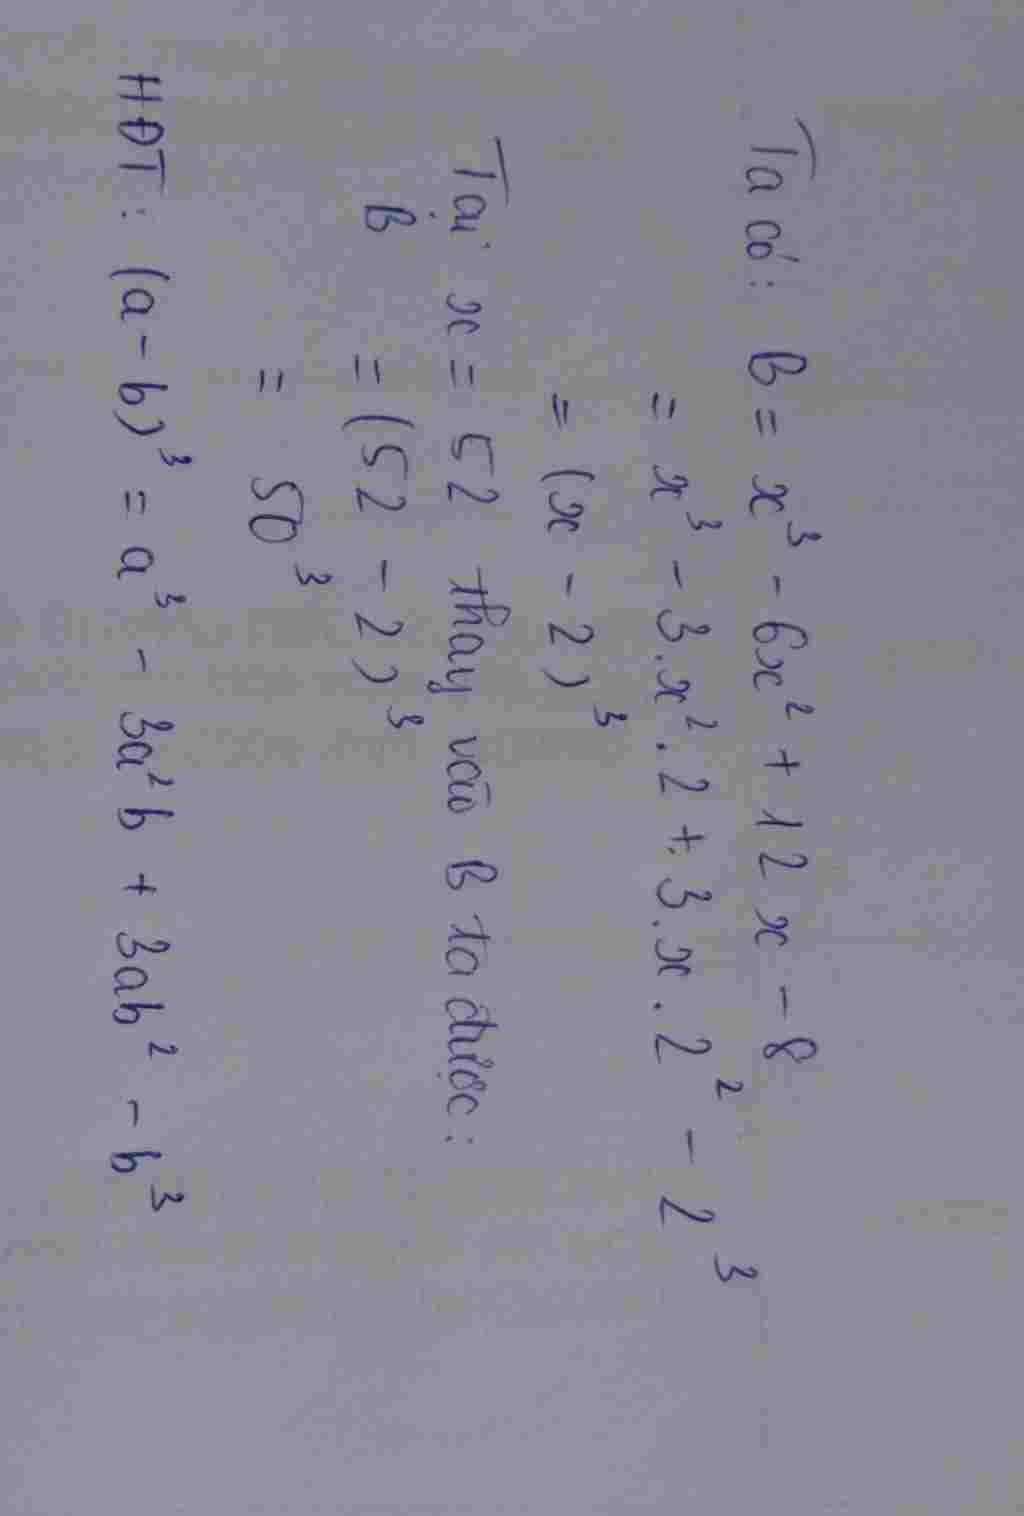 Ta có: B = x³ - 6x² + 12x - 8
= x³ - 3.x².2 + 3.x.2² - 2³
= (x - 2)³
Tại x = 52 thay vào B ta được:
B = (52 - 2)³
= 50³
HĐT: (a - b)³ = a³ - 3a²b + 3ab² - b³